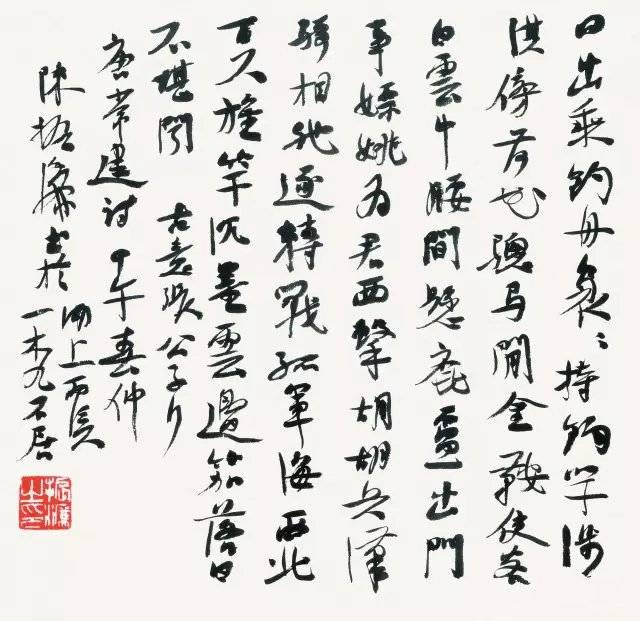 日出乘釣舟裊〻持釣竿涉
淇傍荷花驄馬閒金鞍俠客
白雲中腰間懸鹿盧出門
事嫖姚為君西擊胡胡兵漢
騎相馳逐轉戰孤軍海西北
百尺旌竿沉墨雲邊笳落日
不堪聞 古意張公子行
唐常建詩 甲午春仲
陳振濂書於
海上
一木九石居